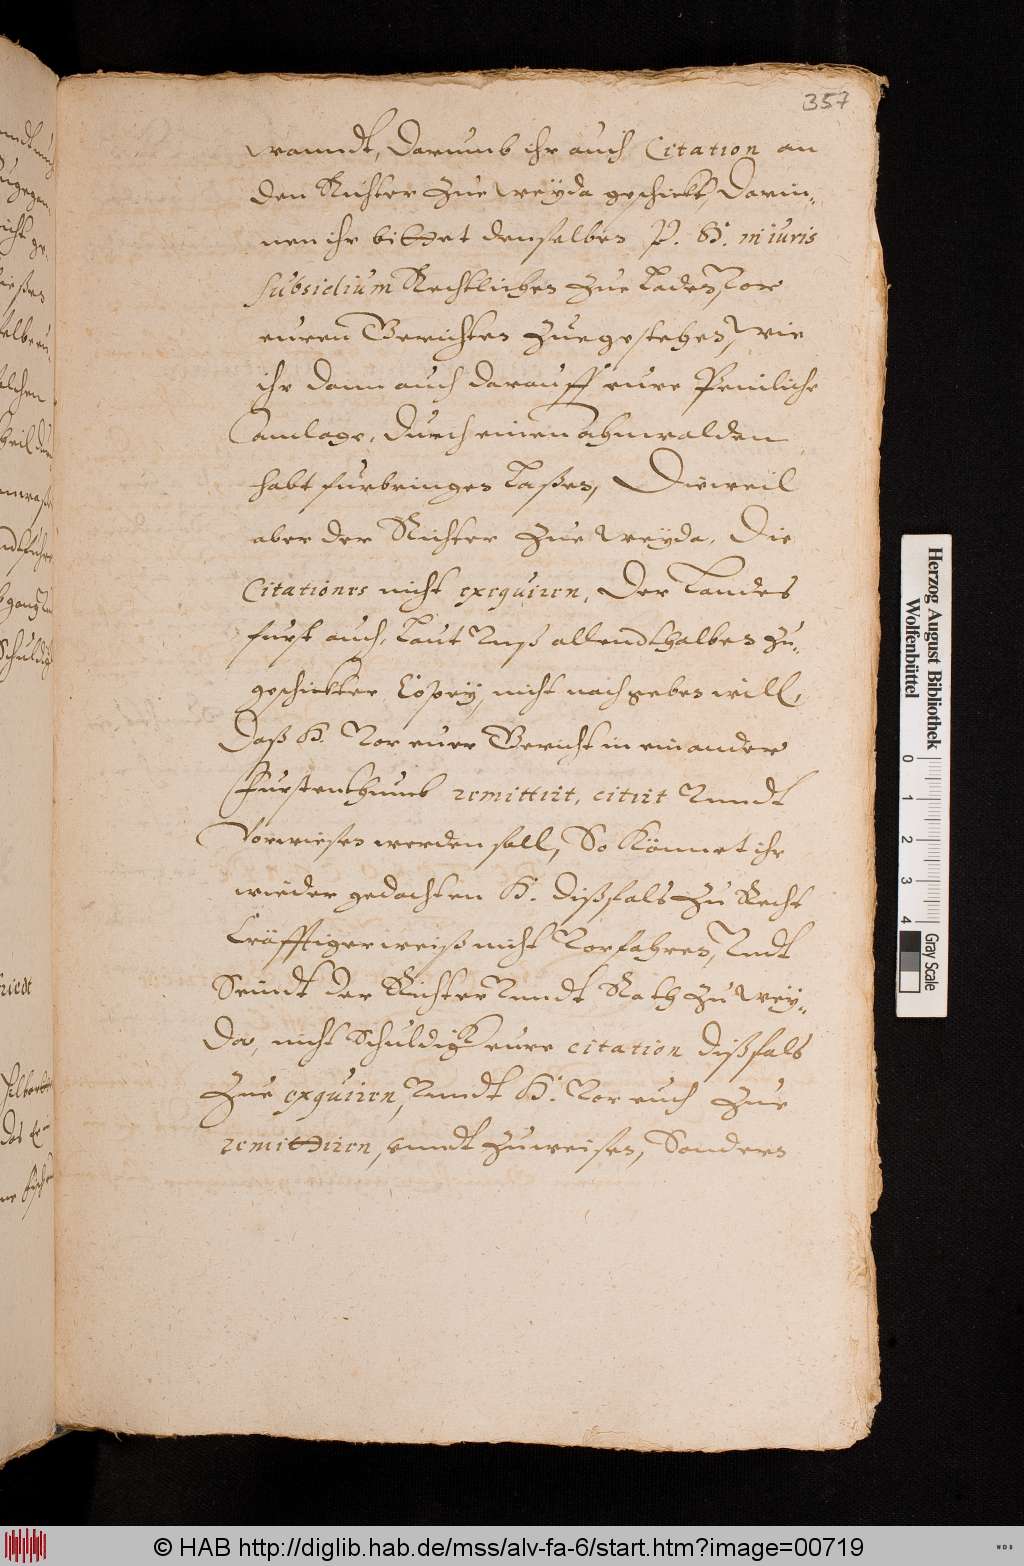 357
wanndt, Darumb ihr auch Citation an
den Richter zue Weÿda geschickt, Darin-
nen ihr bittet denselben P. H. in iuris
subsidium Rechtlichen zue Laden, Vor
euren Gerichten zuegestehen, wie
ihr dann auch darauff eure Peinliche
Anclage, durch einen Ahnwalden
habt furbringen Laßen, Dieweil
aber der Richter zue Weyda, Die
Citationes nicht exequiren, Der Landes
furst auch, Laut Unß allendthalben zu-
geschickter Copeÿ, nicht nachgeben will,
Daß H. Vor euer Gericht in ein ander
Furstenthumb remittirt, citirt Unndt
Vorwiesen werden soll, So Könnet ihr
wieder gedachten H. dißfals zu Recht
Cräfftiger weiß nicht Vorfahren, Undt
Seindt der Richter Unndt Rath zu Wey-
da, nicht Schuldig eure citation dißfals
Zue exquiren, Unndt H. Vor euch zue
remittiren, unndt zuweisen, Sondern
Herzog August Bibliothek
Wolfenbüttel
0 1 2 3 4
Gray Scale
© HAB http://diglib.hab.de/mss/alv-fa-6/start.htm?image=00719